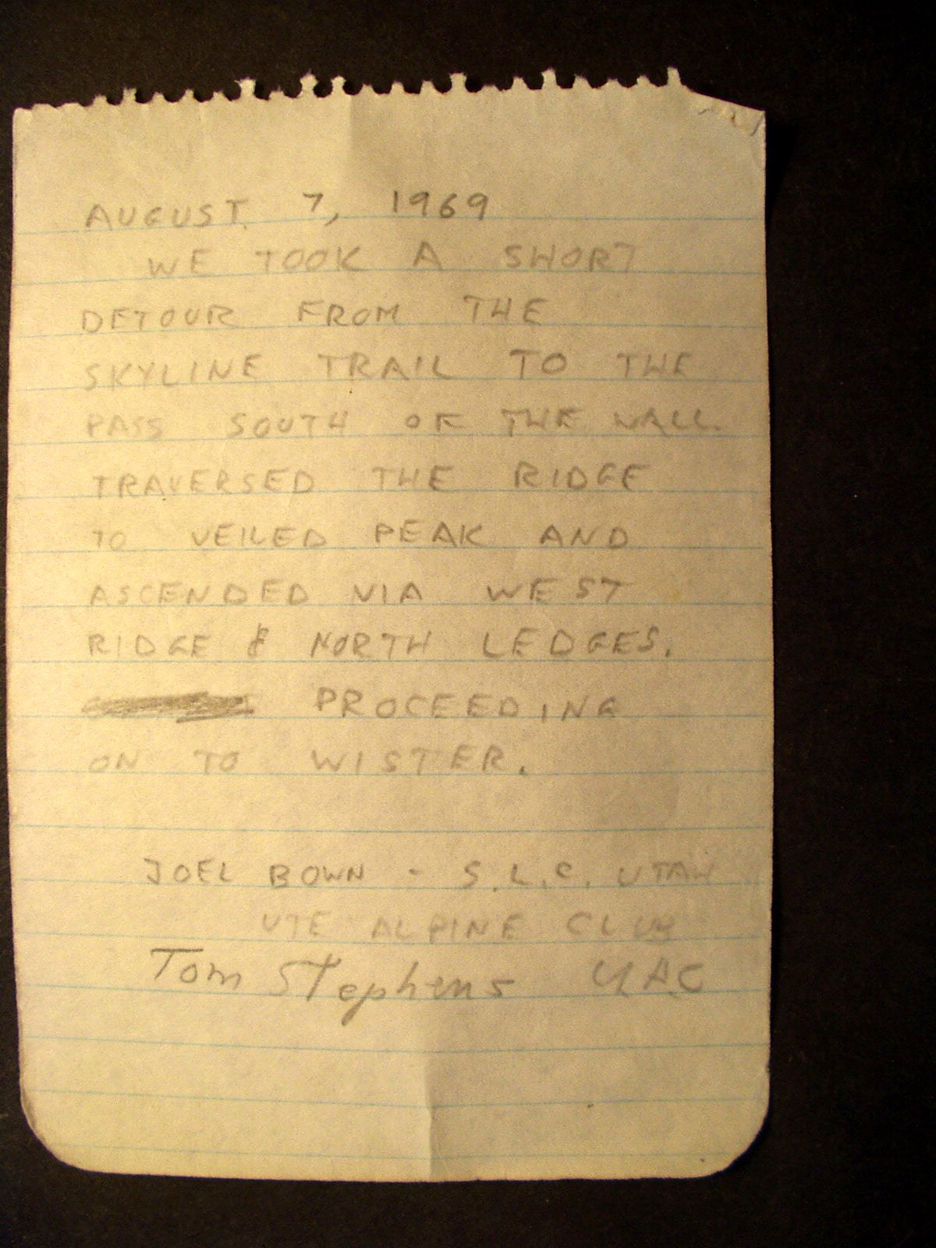 AUGUST 7, 1969
WE TOOK A SHORT
DETOUR FROM THE
SKYLINE TRAIL TO THE
PASS SOUTH OF THE WALL.
TRAVERSED THE RIDGE
TO VEILED PEAK AND
ASCENDED VIA WEST
RIDGE & NORTH LEDGES.
PROCEEDING
ON TO WISTER.
JOEL BOWN - S.L.C. UTAH
UTE ALPINE CLUB
Tom Stephens UAC